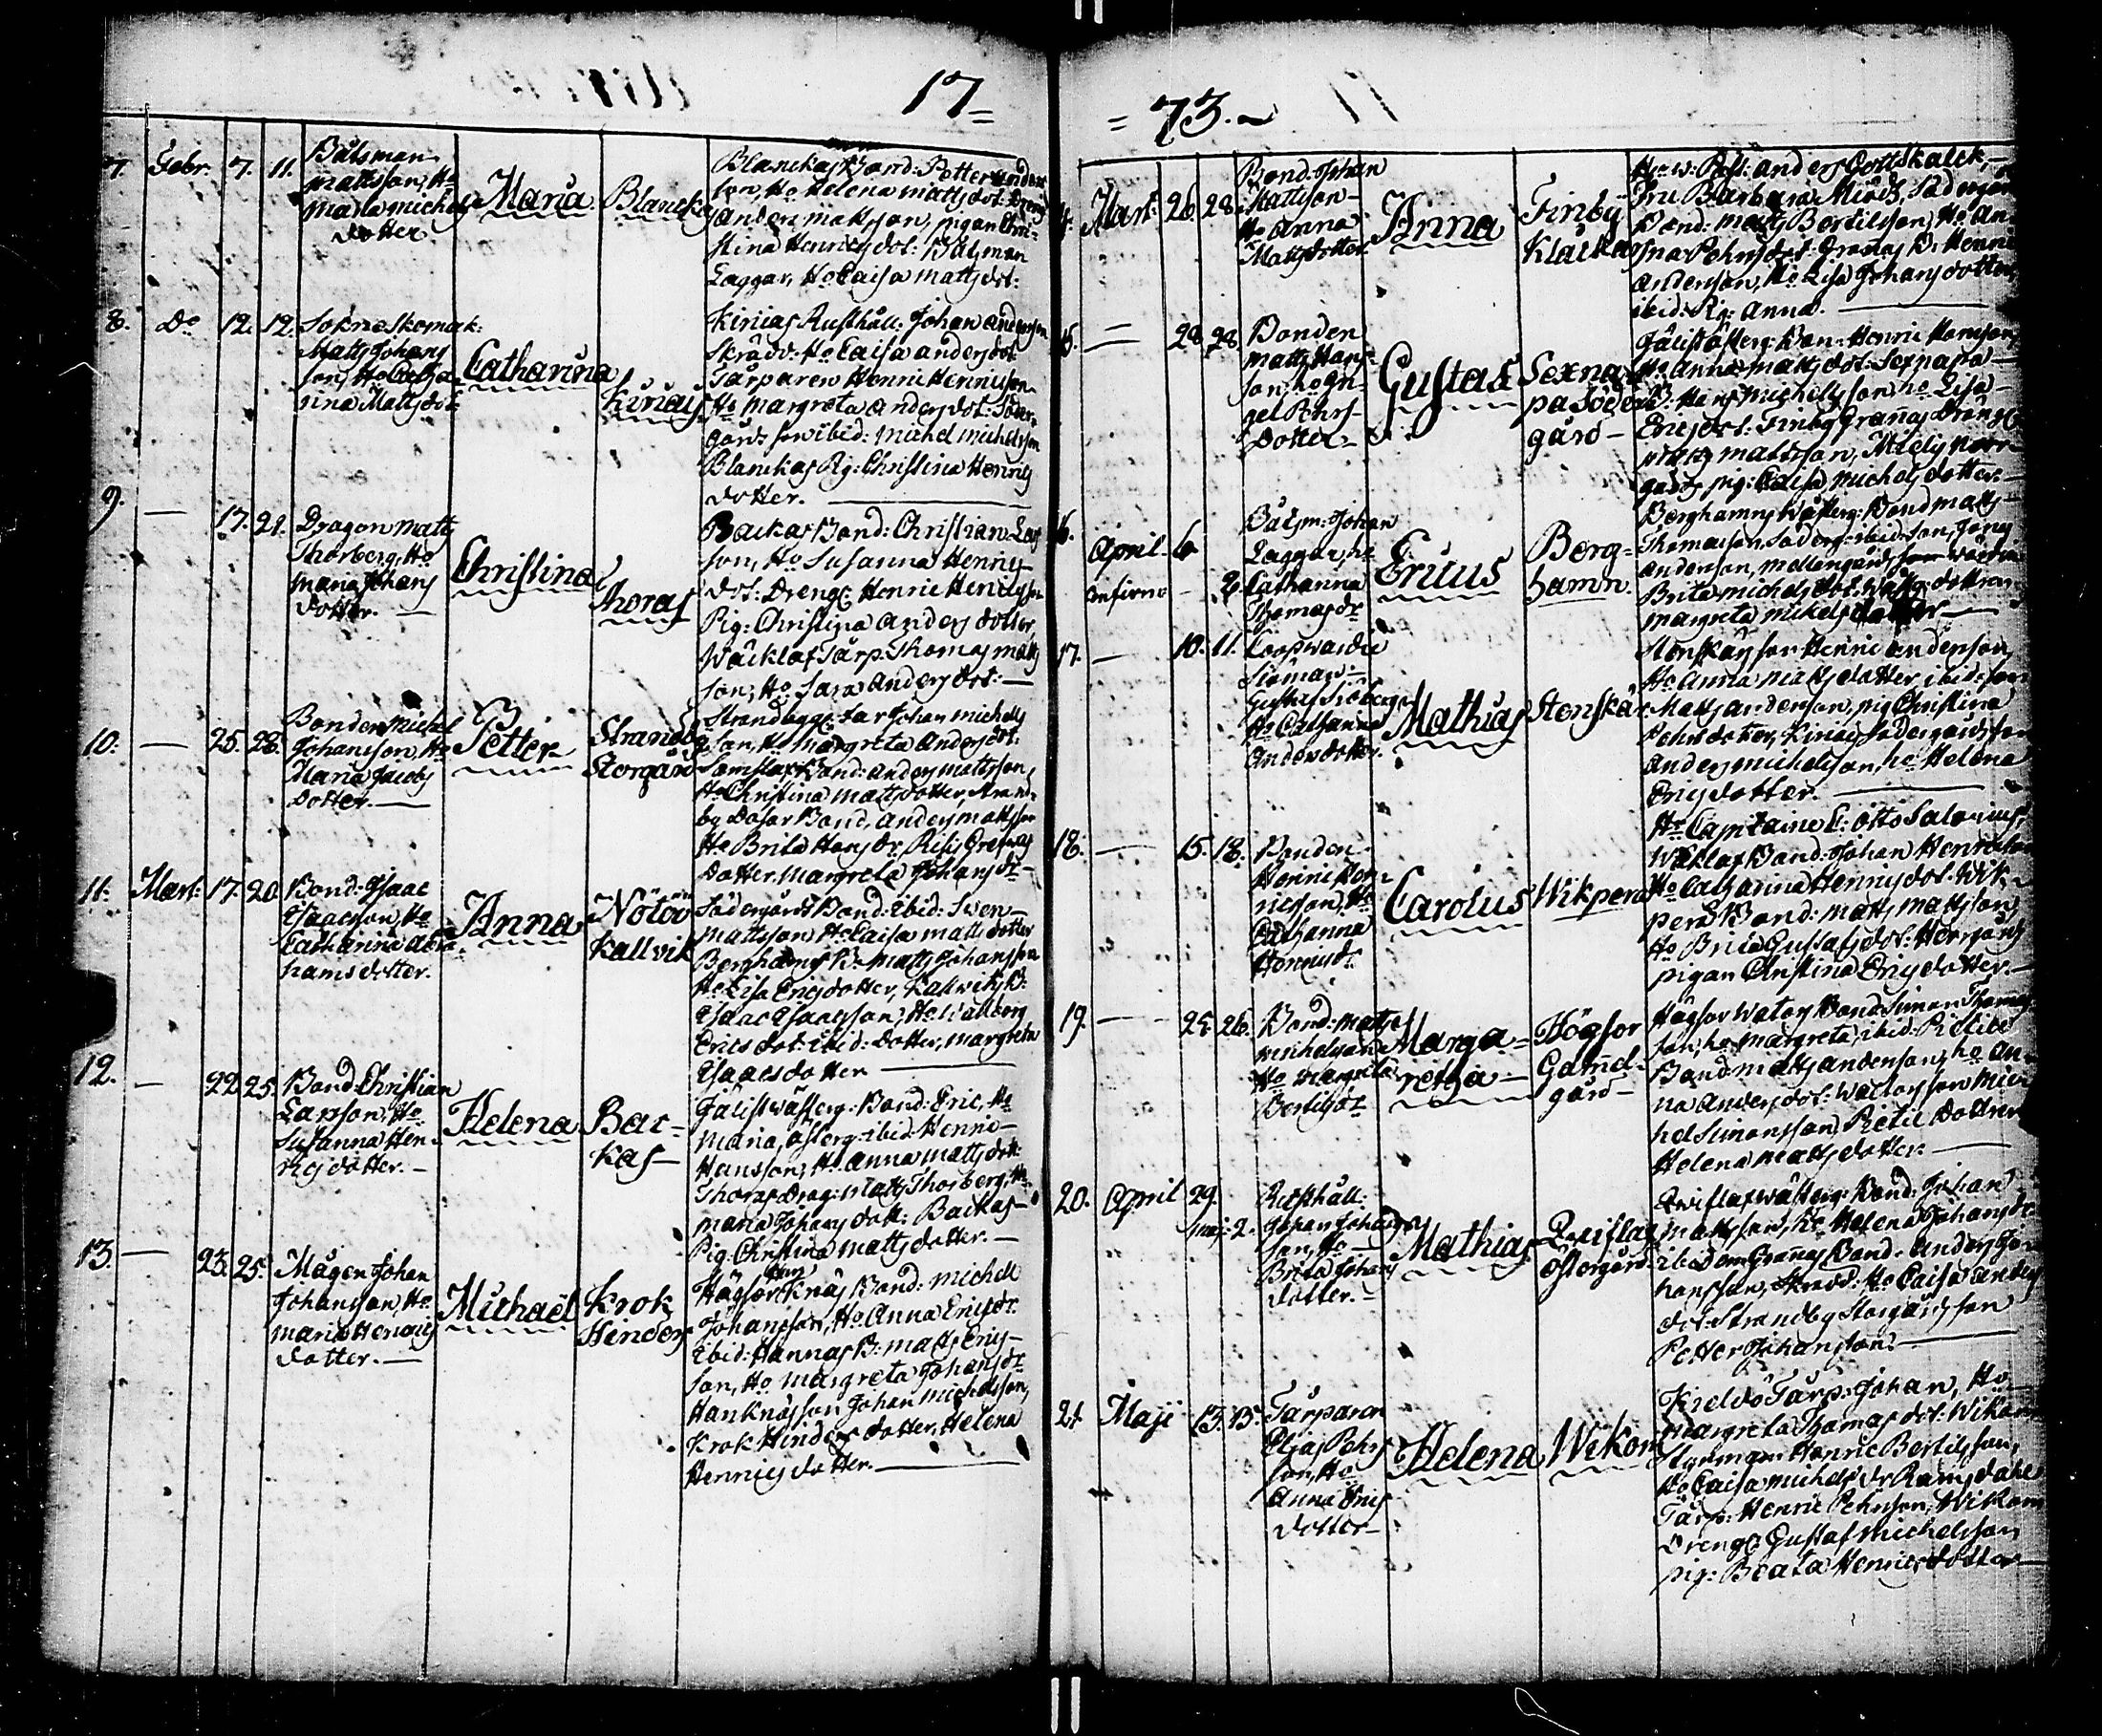 17=
7. Febr. 7. 11. Båtsman
Mattsson, Ho
Maria Michels
dotter
Maria
Blanckas
Blanckas Bond: Petter Anders
son, Ho Helena Matts dot: Dreng
Anders Mattsson, pigan Chri-
stina Henrics dot: Båtsman
Laggar, Ho Caisa Matts dot:
8. Do 12. 12. Sokne Skomak:
Matts Johans
son, Ho Catha
rina Matts dot:
Catharina
Kirjais
Kirjais Rusthåll: Johan Andersson
Skrädd: Ho Caisa Anders dot:
Tårparen Henric Henricsson
Ho Margreta Anders dot: Söder-
gårds son ibid: Michel Michelsson
Blanckas Pig: Christina Henrics
dotter.
9. — 17. 21. Dragon Matts
Thorberg, Ho
Maria Johans
dotter. —
Christina
Thoras
Backas Bond: Christian Lars
son, Ho Susanna Henrics
dot: Drengs: Henric Henricsson
Pig: Christina Anders dotter,
Wäcklax Tårp: Thomas Matts
son, Ho Sara Anders dot: —
10. — 25. 28. Bonden Michel
Johansson, Ho
Maria Jacobs
dotter. —
Petter
Strandby
Storgård
Strandby far Johan Michels
son, Ho Margreta Anders dot:
Bond: Anders Mattsson,
Ho Christina Matts dotter, Strand-
by Bond, Anders Mattsson
Ho Brita Hans dr,
dotter Margreta Johans dr —
11. Mart: 17. 20. Bond: Isaac
Isaacsson, Ho
Catharina Abra
hams dotter.
Anna
Nötöö
Kallvik
Södergårds Bond: Ibid: Swen
Mattsson, Ho Caisa Matts dotter
Berghamns B: Matts Johansson
Ho Lisa Erics dotter, Kallwiks B:
Isaac Isaacsson, Ho Walborg
Erics dot: ibid: dotter, Margreta
Isaacs dotter —
12. — 22. 25. Bond: Christian
Larsson, Ho
Susanna Hen-
rics dotter. —
Helena
Bac-
kas —
Wästerg: Bond: Eric, Ho
Maria, Österg: ibid: Henric
Hansson, Ho Anna Matts dott:
Thoras Drag: Matts Thorberg, Ho
Maria Johans dott: Backas
Pig: Christina Matts dotter. —
13. — 23. 25. Mågen Johan
Johansson, Ho
Maria Henrics
dotter. —
Michaël
Krok
Hinders
Högsar Knäs Bond: Michell
Johansson, Ho Anna Erics dr
Ibid: Hannas B: Matts Erics-
son, Ho Margreta Johans dr
Hanknäs son Johan Michelsson,
Krok Hinders dotter, Helena
Henrics dotter. —
= 73. ~
14. Mart: 26. 28. Bond: Johan
Mattsson —
Ho Anna
Matts dotter
Anna
Finby
Klackas
Anders Gottskalck,
Fru Barbara
Bond: Matts Bertilsson, Ho An-
na Pehrs dot: Granas B: Henric
Andersson, Ho Lisa Johans dotter,
ibid: Pig: Anna. —
15. — 28. 28. Bonden
Matts Hans-
son, ho In-
gel Pehrs-
dotter —
Gustas
Sexna
pa Söder
gård —
Österg: Bon: Henric Hansson,
Ho Anna Matts dot: Sexnapa —
B: Hans Michelsson, ho Lisa —
Erics dot: Finby Granas Drängs
Mattsson, Norr
gårds pig: Caisa Michels dotter. —
16. April 6.
Båtsm: Johan
Laggar, ho
Catharina
Thomas dr
Ericus
Berg-
hamn.
Berghamns Wästerg: Bond Matts
Thomasson, Söderg: ibid: son, Jöns
Andersson, Mellangårds
Brita Michels dot:
Margreta Mikels dotter —
17. — 10. 11. Coopvardie
Siöman —
Gustaf Siöberg
Ho Catharina
Anders dotter.
Mathias
Stenskär
Stenskärs son Henric Andersson
Ho Anna Matts dotter, ibid: son
Matts Andersson, pig: Christina
Pehrs dotter, Kirjais Södergårds son
Anders Michelsson, ho Helena
Erics dotter. —
18. — 15. 18. Bonden
Henric Hen-
ricsson, Ho
Catharina
Henrics dr
Carolus
Wikperä
Hr Capitaine C: Otto Salonius,
Wäcklax Bond: Johan Henricsson
Ho Catharina Henrics dot: Wik-
perä Bond: Matts Mattsson,
Ho Brita Gustafs dot: Herrgårds
pigan Christina Erics dotter. —
19. — 25. 26. Bond: Matts
Michelsson
Ho Margreta
Bertils dr
Marga-
retha —
Högsor
Gamel-
gård —
Högsor Bond Simon Thomas
son, ho Margreta, ibid: Pietilä
Bond Matts Andersson, ho An-
na Anders dot: son Mic-
hel Simonsson, Pietilä dottren
Helena Matts dotter. —
20. April 29.
Maj: 2.
Rusthåll:
Johan Johans
son, Ho —
Brita Johans
dotter. —
Mathias
Qviflax
Östergård
Qviflax Wästerg: Bond: Johan
Mattsson, Ho Helena Johans dr
ibidem Granas Bond: Anders Jo-
hansson, Skräd: Ho Caisa Anders
dot: Strandby Storgårds son
Petter Johansson. —
21. Maji 13. 15. Tårparen
Elias Pehrs
son, Ho
Anna Erics
dotter —
Helena
Wikom
Kieldö Tårp: Johan, Ho
Margreta Thomas dot: Wikom
Styrman Henric Bertilsson,
Ho Caisa Michels dr Ramsdahl
Tårp: Henric Pehrsson, Wikom
Drengs: Gustaf Michelsson
pig: Beata Henrics dotter —